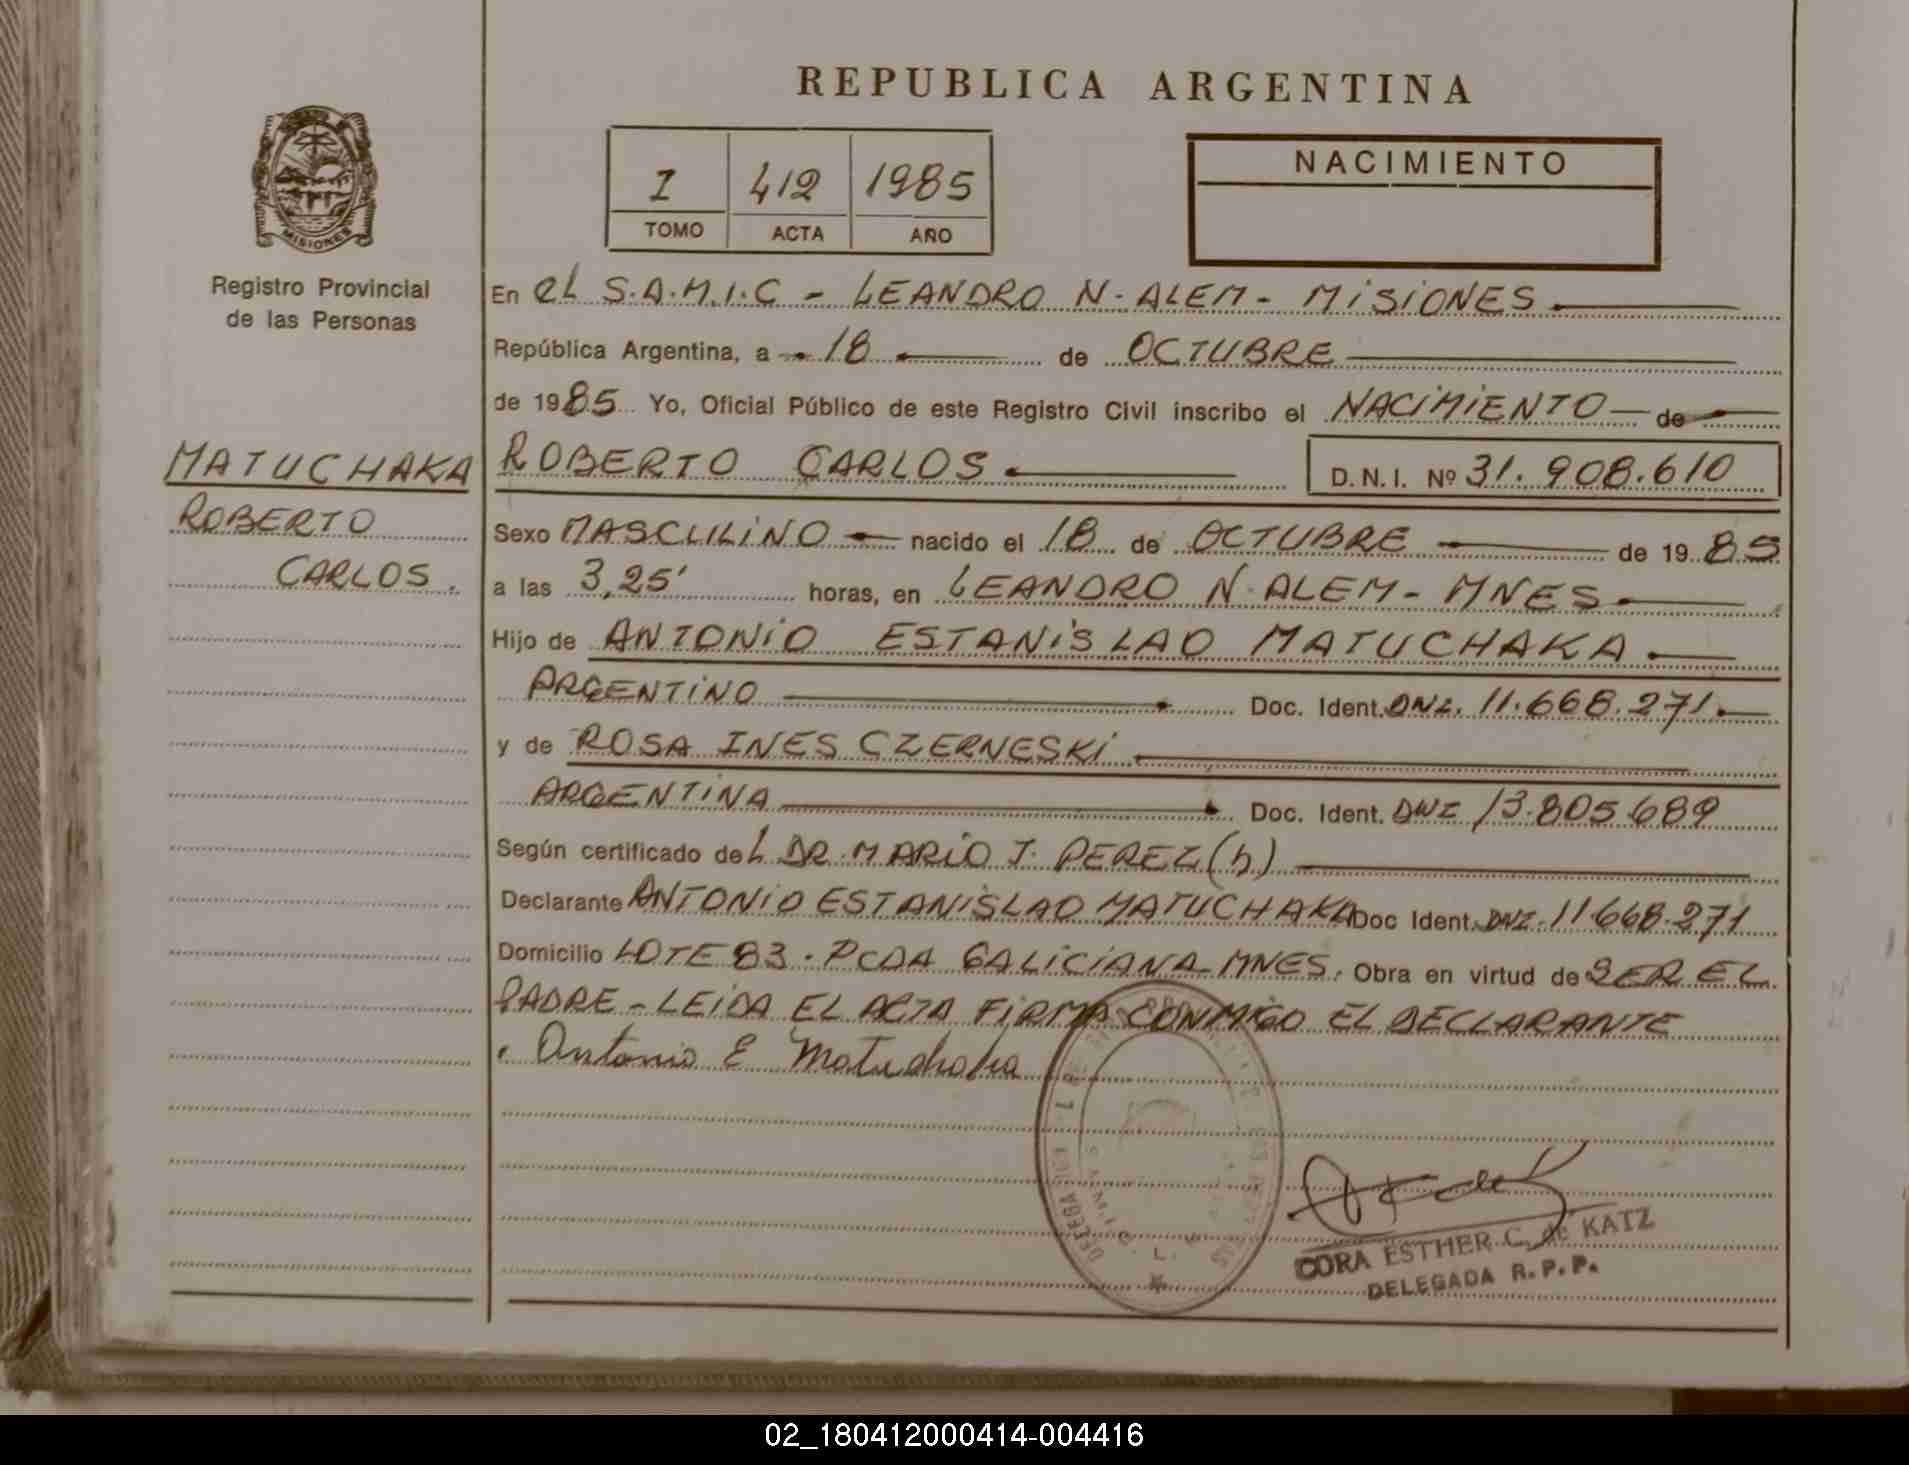 REPUBLICA ARGENTINA
MISIONES
Registro Provincial
de las Personas
I 412 1985
TOMO ACTA AÑO
NACIMIENTO
En EL S.A.M.I.C - LEANDRO N. ALEM - MISIONES
República Argentina, a 18 de OCTUBRE
de 1985 Yo, Oficial Público de este Registro Civil inscribo el NACIMIENTO de
MATUCHAKA
ROBERTO
CARLOS.
ROBERTO CARLOS
D.N.I. Nº 31.908.610
Sexo MASCULINO nacido el 18 de OCTUBRE de 1985
a las 3,25' horas, en LEANDRO N. ALEM - MNES
Hijo de ANTONIO ESTANISLAO MATUCHAKA
ARGENTINO Doc. Ident. DNI. 11.668.271.
y de ROSA INES CZERNESKI
ARGENTINA Doc. Ident. DNI 13.805.689
Según certificado del DR. MARIO J. PEREZ (h)
Declarante ANTONIO ESTANISLAO MATUCHAKA Doc Ident. DNI. 11.668.271
Domicilio LOTE 83. PCDA GALICIANA MNES. Obra en virtud de SER EL
PADRE - LEIDA EL ACTA FIRMA CONMIGO EL DECLARANTE
Antonio E Matuchaka
CORA ESTHER C. de KATZ
DELEGADA R.P.P.
02_180412000414-004416